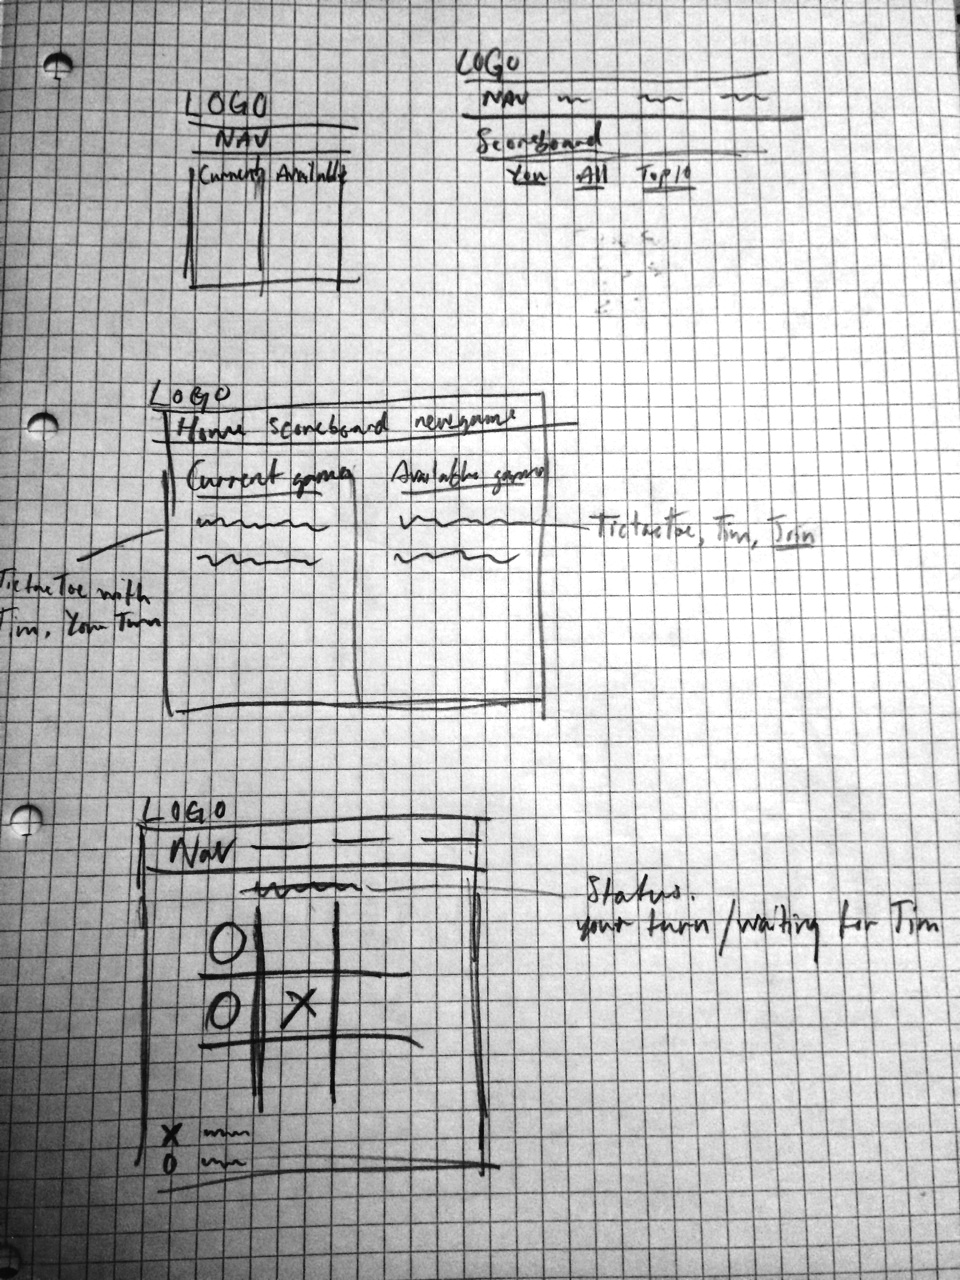 LOGO
NAV
Current Available
LOGO
NAV
Scoreboard
You All Top10
LOGO
Home Scoreboard newgame
Current games Available games
TictacToe, Tim, Join
TictacToe with
Tim, Your Turn
LOGO
Nav
Status.
your turn / waiting for Tim
O
O X
X
O